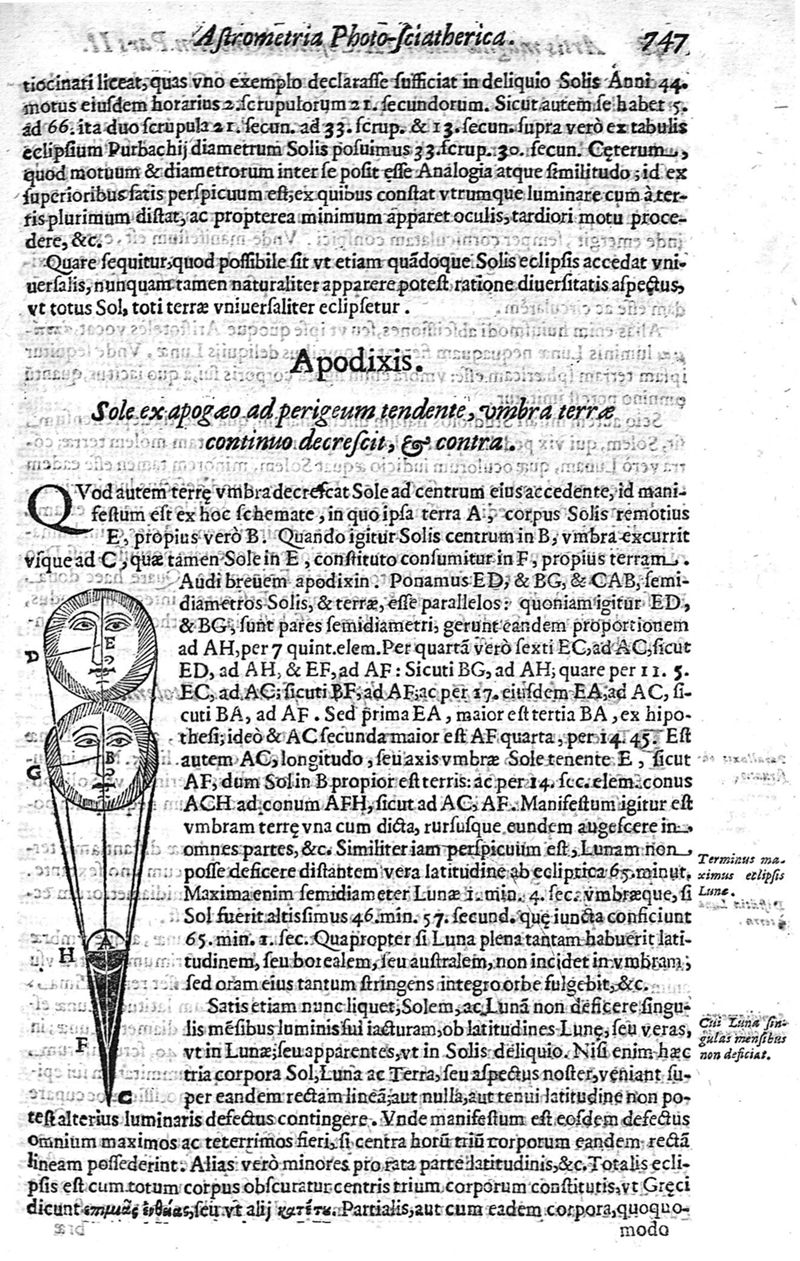 Astrometria Photo-sciatherica. 747
tiocinari liceat, quas vno exemplo declarasse sufficiat in deliquio Solis Anni 44.
motus eiusdem horarius 2. scrupulorum 21. secundorum. Sicut autem se habet 5.
ad 66. ita duo scrupula 21. secun. ad 33. scrup. & 13. secun. supra verò ex tabulis
eclipsium Purbachij diametrum Solis posuimus 33. scrup. 30. secun. Cęterum,
quod motuum & diametrorum inter se possit esse Analogia atque similitudo; id ex
superioribus satis perspicuum est; ex quibus constat vtrumque luminare cum à ter-
ris plurimum distat, ac propterea minimum apparet oculis, tardiori motu proce-
dere, &c.
Quare sequitur, quod possibile sit vt etiam quãdoque Solis eclipsis accedat vni-
uersalis, nunquam tamen naturaliter apparere potest ratione diuersitatis aspectus,
vt totus Sol, toti terræ vniuersaliter eclipsetur.
Apodixis.
Sole ex apogæo ad perigeum tendente, vmbra terræ
continuo decrescit, & contra.
QVod autem terrę vmbra decrescat Sole ad centrum eius accedente, id mani-
festum est ex hoc schemate, in quo ipsa terra A, corpus Solis remotius
E, propius verò B. Quando igitur Solis centrum in B, vmbra excurrit
vsque ad C, quæ tamen Sole in E, constituto consumitur in F, propius terram.
Audi breuem apodixin. Ponamus ED, & BG, & CAB, semi-
diametros Solis, & terræ, esse parallelos: quoniam igitur ED,
& BG, sunt pares semidiametri, gerunt eandem proportionem
ad AH, per 7 quint. elem. Per quartã verò sexti EC, ad AC, sicut
ED, ad AH, & EF, ad AF: Sicuti BG, ad AH; quare per 11. 5.
EC, ad AC; sicuti BF, ad AF; ac per 17. eiusdem EA, ad AC, si-
cuti BA, ad AF. Sed prima EA, maior est tertia BA, ex hipo-
thesi; ideò & AC secunda maior est AF quarta, per 14. 45. Est
autem AC, longitudo, seu axis vmbræ Sole tenente E, sicut
AF, dum Sol in B propior est terris: ac per 14. sec. elem. conus
ACH ad conum AFH, sicut ad AC, AF. Manifestum igitur est
vmbram terrę vna cum dicta, rursusque eundem augescere in
omnes partes, &c. Similiter iam perspicuum est, Lunam non
posse deficere distantem vera latitudine ab ecliptica 65. minut.
Maxima enim semidiameter Lunæ 1. min. 4. sec. vmbræque, si
Sol fuerit altissimus 46. min. 57. secund. quę iuncta conficiunt
65. min. 1. sec. Quapropter si Luna plena tantam habuerit lati-
tudinem, seu borealem, seu australem, non incidet in vmbram;
sed oram eius tantum stringens integro orbe fulgebit, &c.
Terminus ma-
ximus eclipsis
Lunæ.
Satis etiam nunc liquet, Solem, ac Lunã non deficere singu-
lis mẽsibus luminis sui iacturam, ob latitudines Lunę, seu veras,
vt in Lunæ; seu apparentes, vt in Solis deliquio. Nisi enim hæc
tria corpora Sol, Luna ac Terra, seu aspectus noster, veniant su-
per eandem rectam lineã; aut nulla, aut tenui latitudine non po-
test alterius luminaris defectus contingere. Vnde manifestum est eosdem defectus
omnium maximos ac teterrimos fieri, si centra horũ triũ corporum eandem rectã
lineam possederint. Alias verò minores pro rata parte latitudinis, &c. Totalis ecli-
psis est cum totum corpus obscuratur centris trium corporum constitutis, vt Gręci
dicunt seu vt alij Partialis, aut cum eadem corpora, quoquo-
modo
Cur Luna sin-
gulas mensibus
non deficiat.
E
D
B
G
A
H
F
C